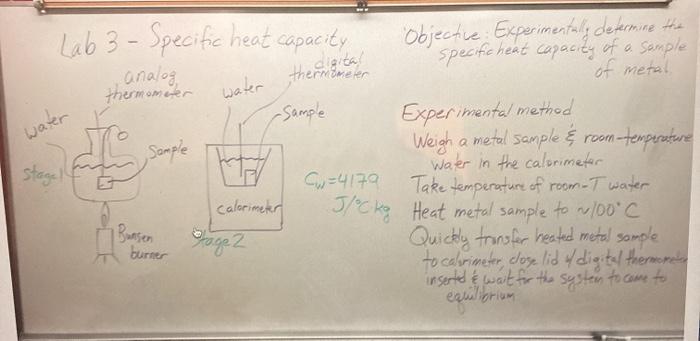 Lab 3 - Specific heat capacity
analog
thermometer
water
Sample
Stage 1
Bunsen
burner
water
digital
thermometer
Sample
calorimeter
Stage 2
Cw=4179
J/°C kg
Objective: Experimentally determine the
specific heat capacity of a sample
of metal
Experimental method
Weigh a metal sample & room-temperature
water in the calorimeter
Take temperature of room-T water
Heat metal sample to ~100°C
Quickly transfer heated metal sample
to calorimeter, close lid w/ digital thermometer
inserted & wait for the system to come to
equilibrium